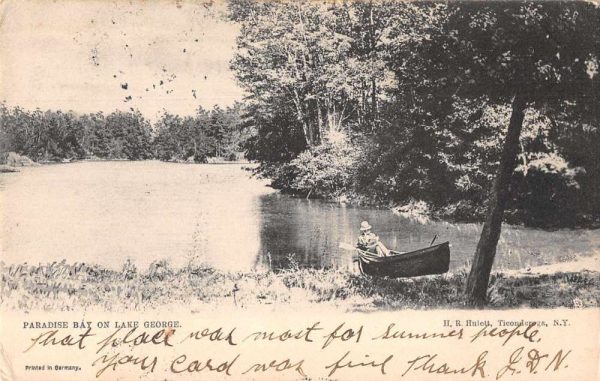 PARADISE BAY ON LAKE GEORGE.
H. R. Hulett, Ticonderoga, N.Y.
That place was most for summer people,
Printed in Germany.
Your card was fine Thank you J. D. N.